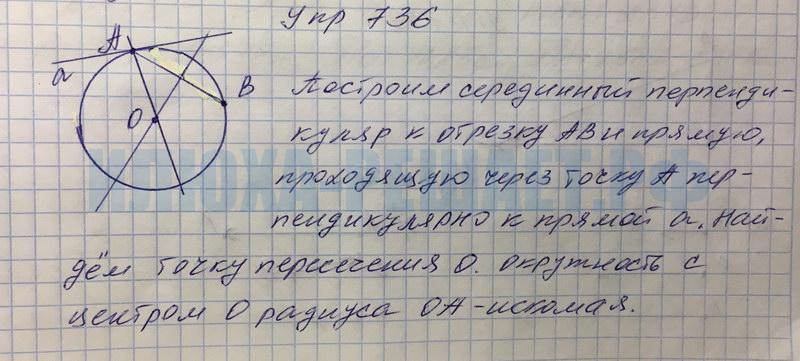 Упр 736
А
а
В
О
Построим серединный перпенди-
куляр к отрезку АВ и прямую,
проходящую через точку А пер-
пендикулярно к прямой а. Най-
дём точку пересечения О. окружность с
центром О радиуса ОА-искомая.